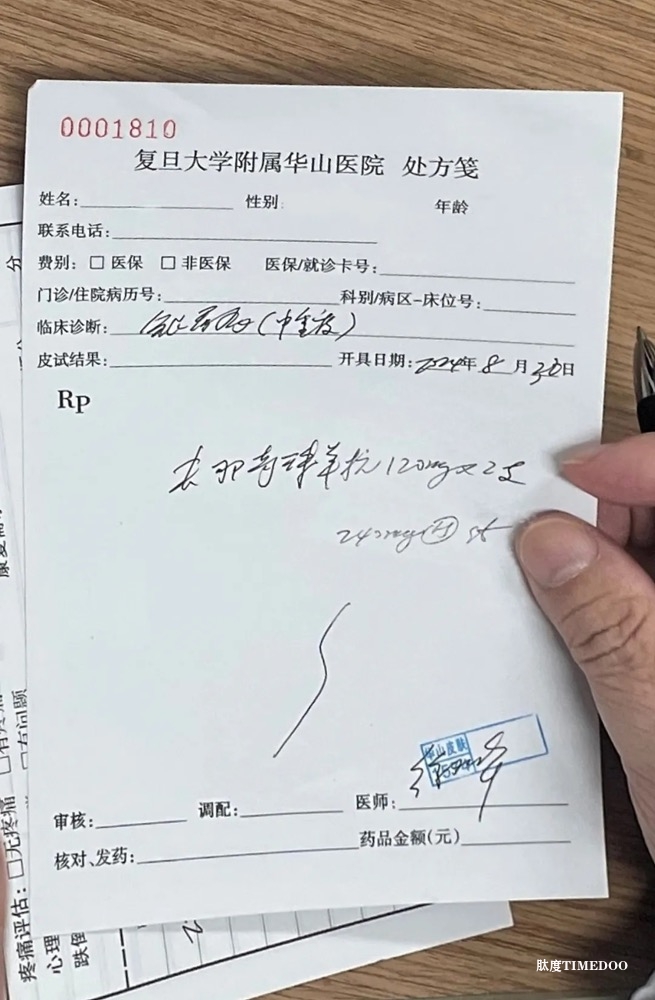 0001810
复旦大学附属华山医院 处方笺
姓名: 性别: 年龄
联系电话:
费别: □ 医保 □ 非医保 医保/就诊卡号:
门诊/住院病历号: 科别/病区-床位号:
临床诊断: (中重度)
皮试结果: 开具日期: 2024年 8月30日
Rp
单抗 120mg×2支
240mg st
华山皮肤
审核: 调配: 医师:
核对、发药: 药品金额(元)
疼痛评估: □无疼痛 □有疼痛
心理
跌倒
□有问题
肽度TIMEDOO